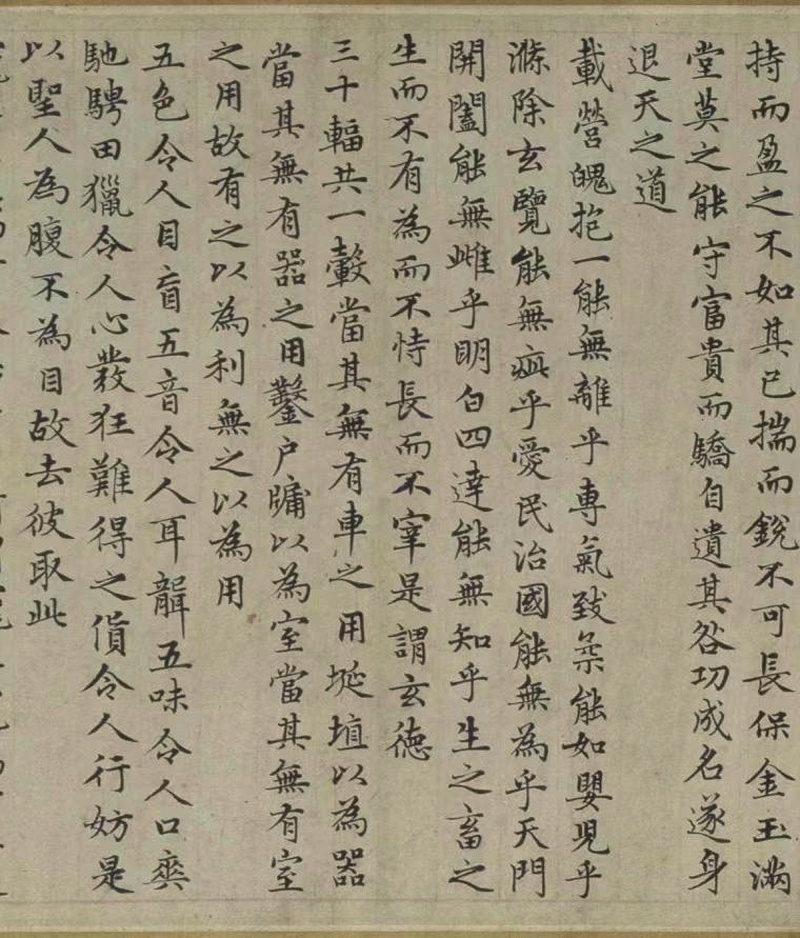 持而盈之不如其已揣而銳不可長保金玉滿
堂莫之能守富貴而驕自遺其咎功成名遂身
退天之道
載營魄抱一能無離乎專氣致柔能如嬰兒乎
滌除玄覽能無疵乎愛民治國能無為乎天門
開闔能無雌乎明白四達能無知乎生之畜之
生而不有為而不恃長而不宰是謂玄德
三十輻共一轂當其無有車之用埏埴以為器
當其無有器之用鑿戶牖以為室當其無有室
之用故有之以為利無之以為用
五色令人目盲五音令人耳聾五味令人口爽
馳騁田獵令人心發狂難得之貨令人行妨是
以聖人為腹不為目故去彼取此